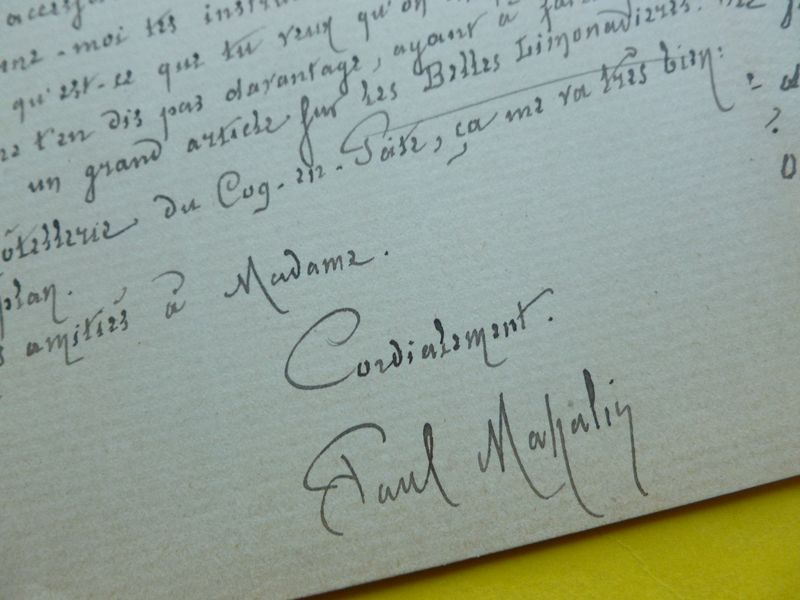 -moi les
qu'est-ce que tu veux qu'on
t'en dis pas davantage, ayant à
un grand article sur les Belles Limonadières.
du Coq-en-Pâte, ça me va très bien:
plan.
amitiés à Madame.
Cordialement.
Paul Mahalin